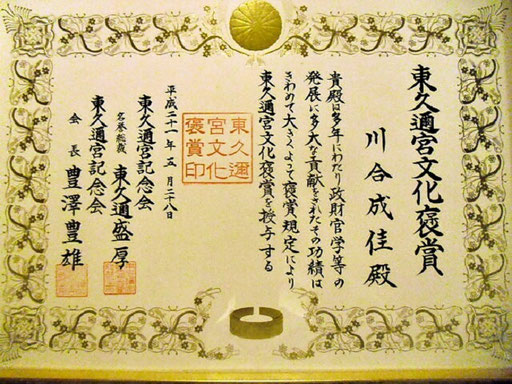 東久邇宮文化褒賞
川合成佳殿
貴殿は多年にわたり政財官学等の
発展に多大な貢献をされたその功績は
きわめて大きくよって褒賞規定により
東久邇宮文化褒賞を授与する
東久邇
宮文化
褒賞印
平成二十一年五月二十八日
東久邇宮記念会
名誉総裁 東久邇盛厚
東久邇宮記念会
会長 豊澤豊雄